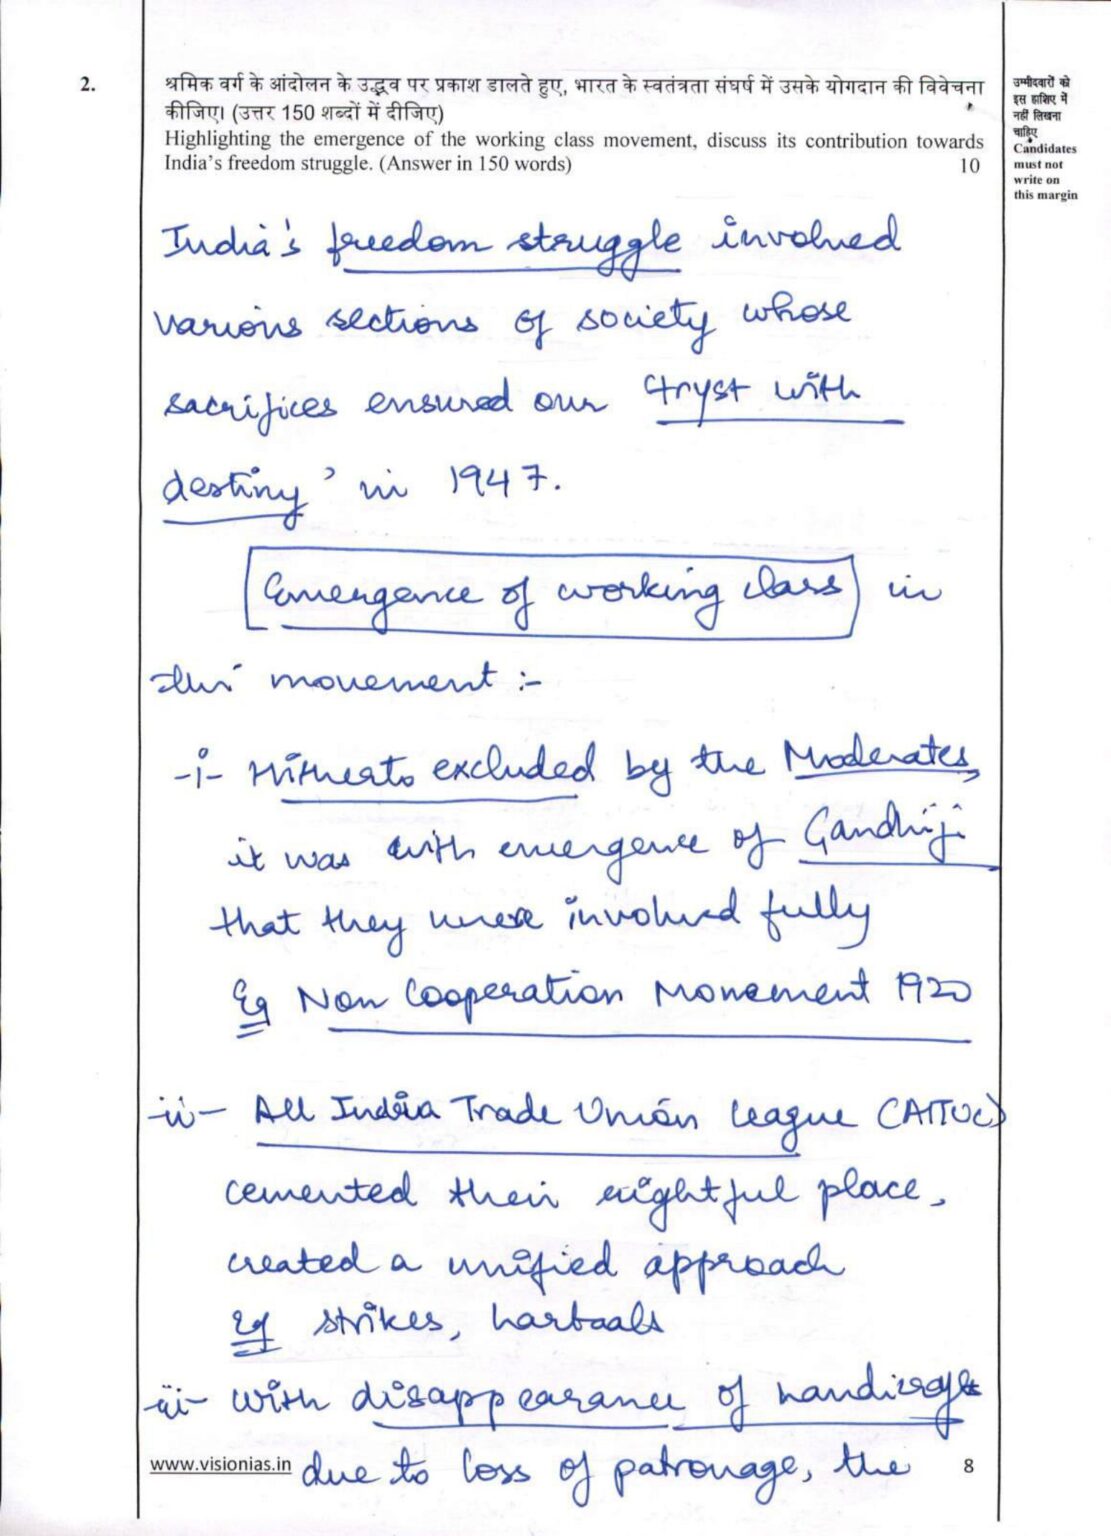 2.
श्रमिक वर्ग के आंदोलन के उद्भव पर प्रकाश डालते हुए, भारत के स्वतंत्रता संघर्ष में उसके योगदान की विवेचना
कीजिए। (उत्तर 150 शब्दों में दीजिए)
Highlighting the emergence of the working class movement, discuss its contribution towards
India's freedom struggle. (Answer in 150 words) 10
उम्मीदवारों को
इस हाशिए में
नहीं लिखना
चाहिए
Candidates
must not
write on
this margin
India's freedom struggle involved
various sections of society whose
sacrifices ensured our 'tryst with
destiny' in 1947.
Emergence of working class in
this movement :-
-i- Hitherto excluded by the Moderates,
it was with emergence of Gandhiji
that they were involved fully
Eg Non Cooperation Movement 1920
-ii- All India Trade Union League (AITUC)
cemented their rightful place,
created a unified approach
Eg strikes, hartaals
-iii- With disappearance of handicrafts
due to loss of patronage, the
www.visionias.in
8